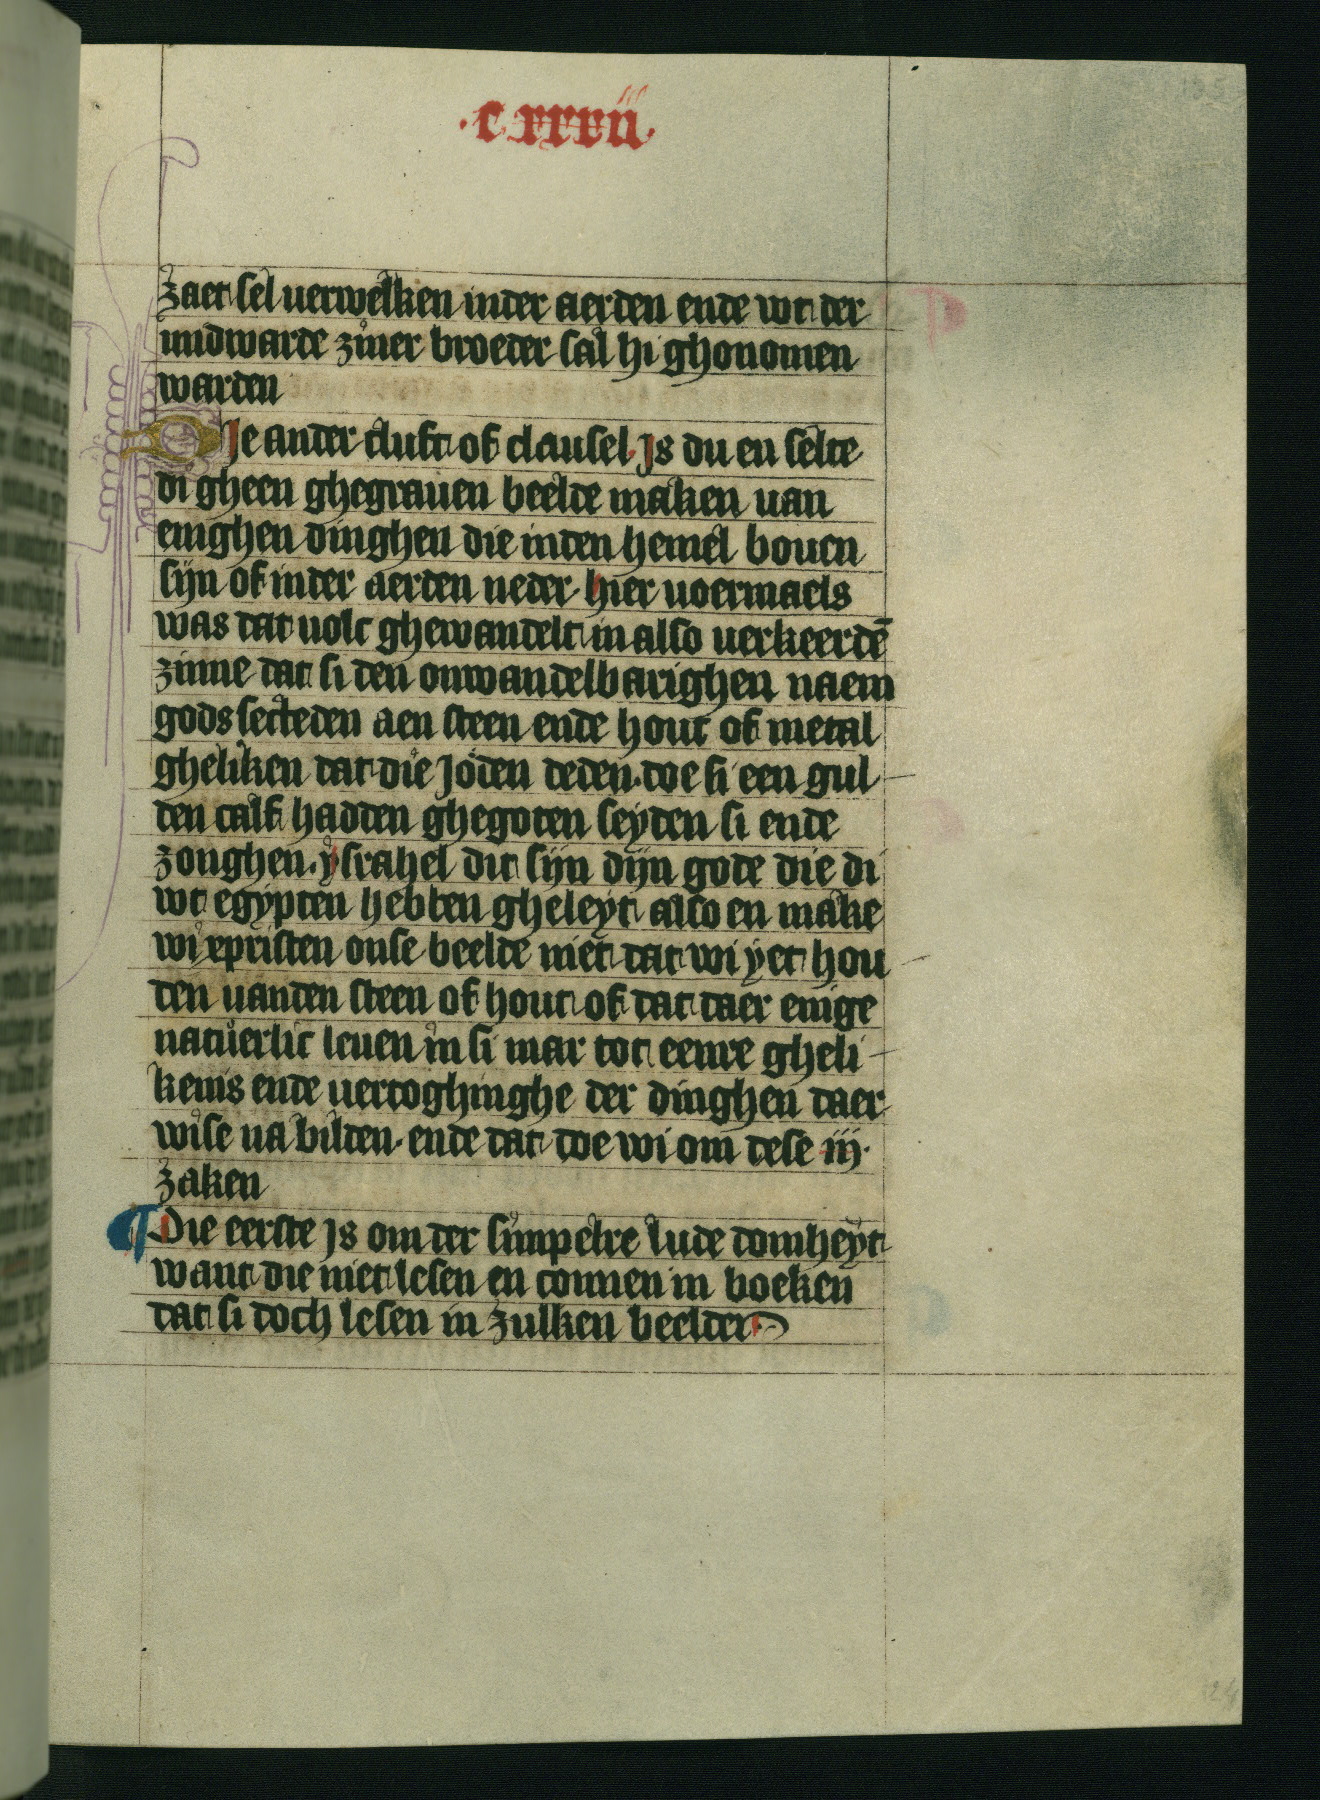 ·cxxxii·
zaet sel uerwelken inder aerden ende wt der
midwarde zijnre broeder sal hi ghonomen
warden
DIe ander cluft of clausel Is du en selte
di gheen ghegrauen beelde maken uan
enighen dinghen die inden hemel bouen
sijn of inder aerden neder hier uoermaels
was dat uolc ghewandelt in also uerkeerdē
zinne dat si den onwandelbarighen naem
gods setteden aen steen ende hout of metal
gheliken dat die Joden deden·doe si een gul
den calf hadden ghegoten seyden si ende
zonghen·ysrahel dit sijn dijn gode die di
wt egypten hebben gheleyt also en make
wi xpristen onse beelde niet dat wi yet hou
den uanden steen of hout of dat daer enige
natuerlic leuen in si mar tot eenre gheli
kenis ende uertoghinghe der dinghen daer
wise na bilden·ende dat doe wi om dese iij·
zaken
Die eerste Is om der simpelre lude domheyt
want die niet lesen en connen in boeken
dat si doch lesen in zulken beelden·
124